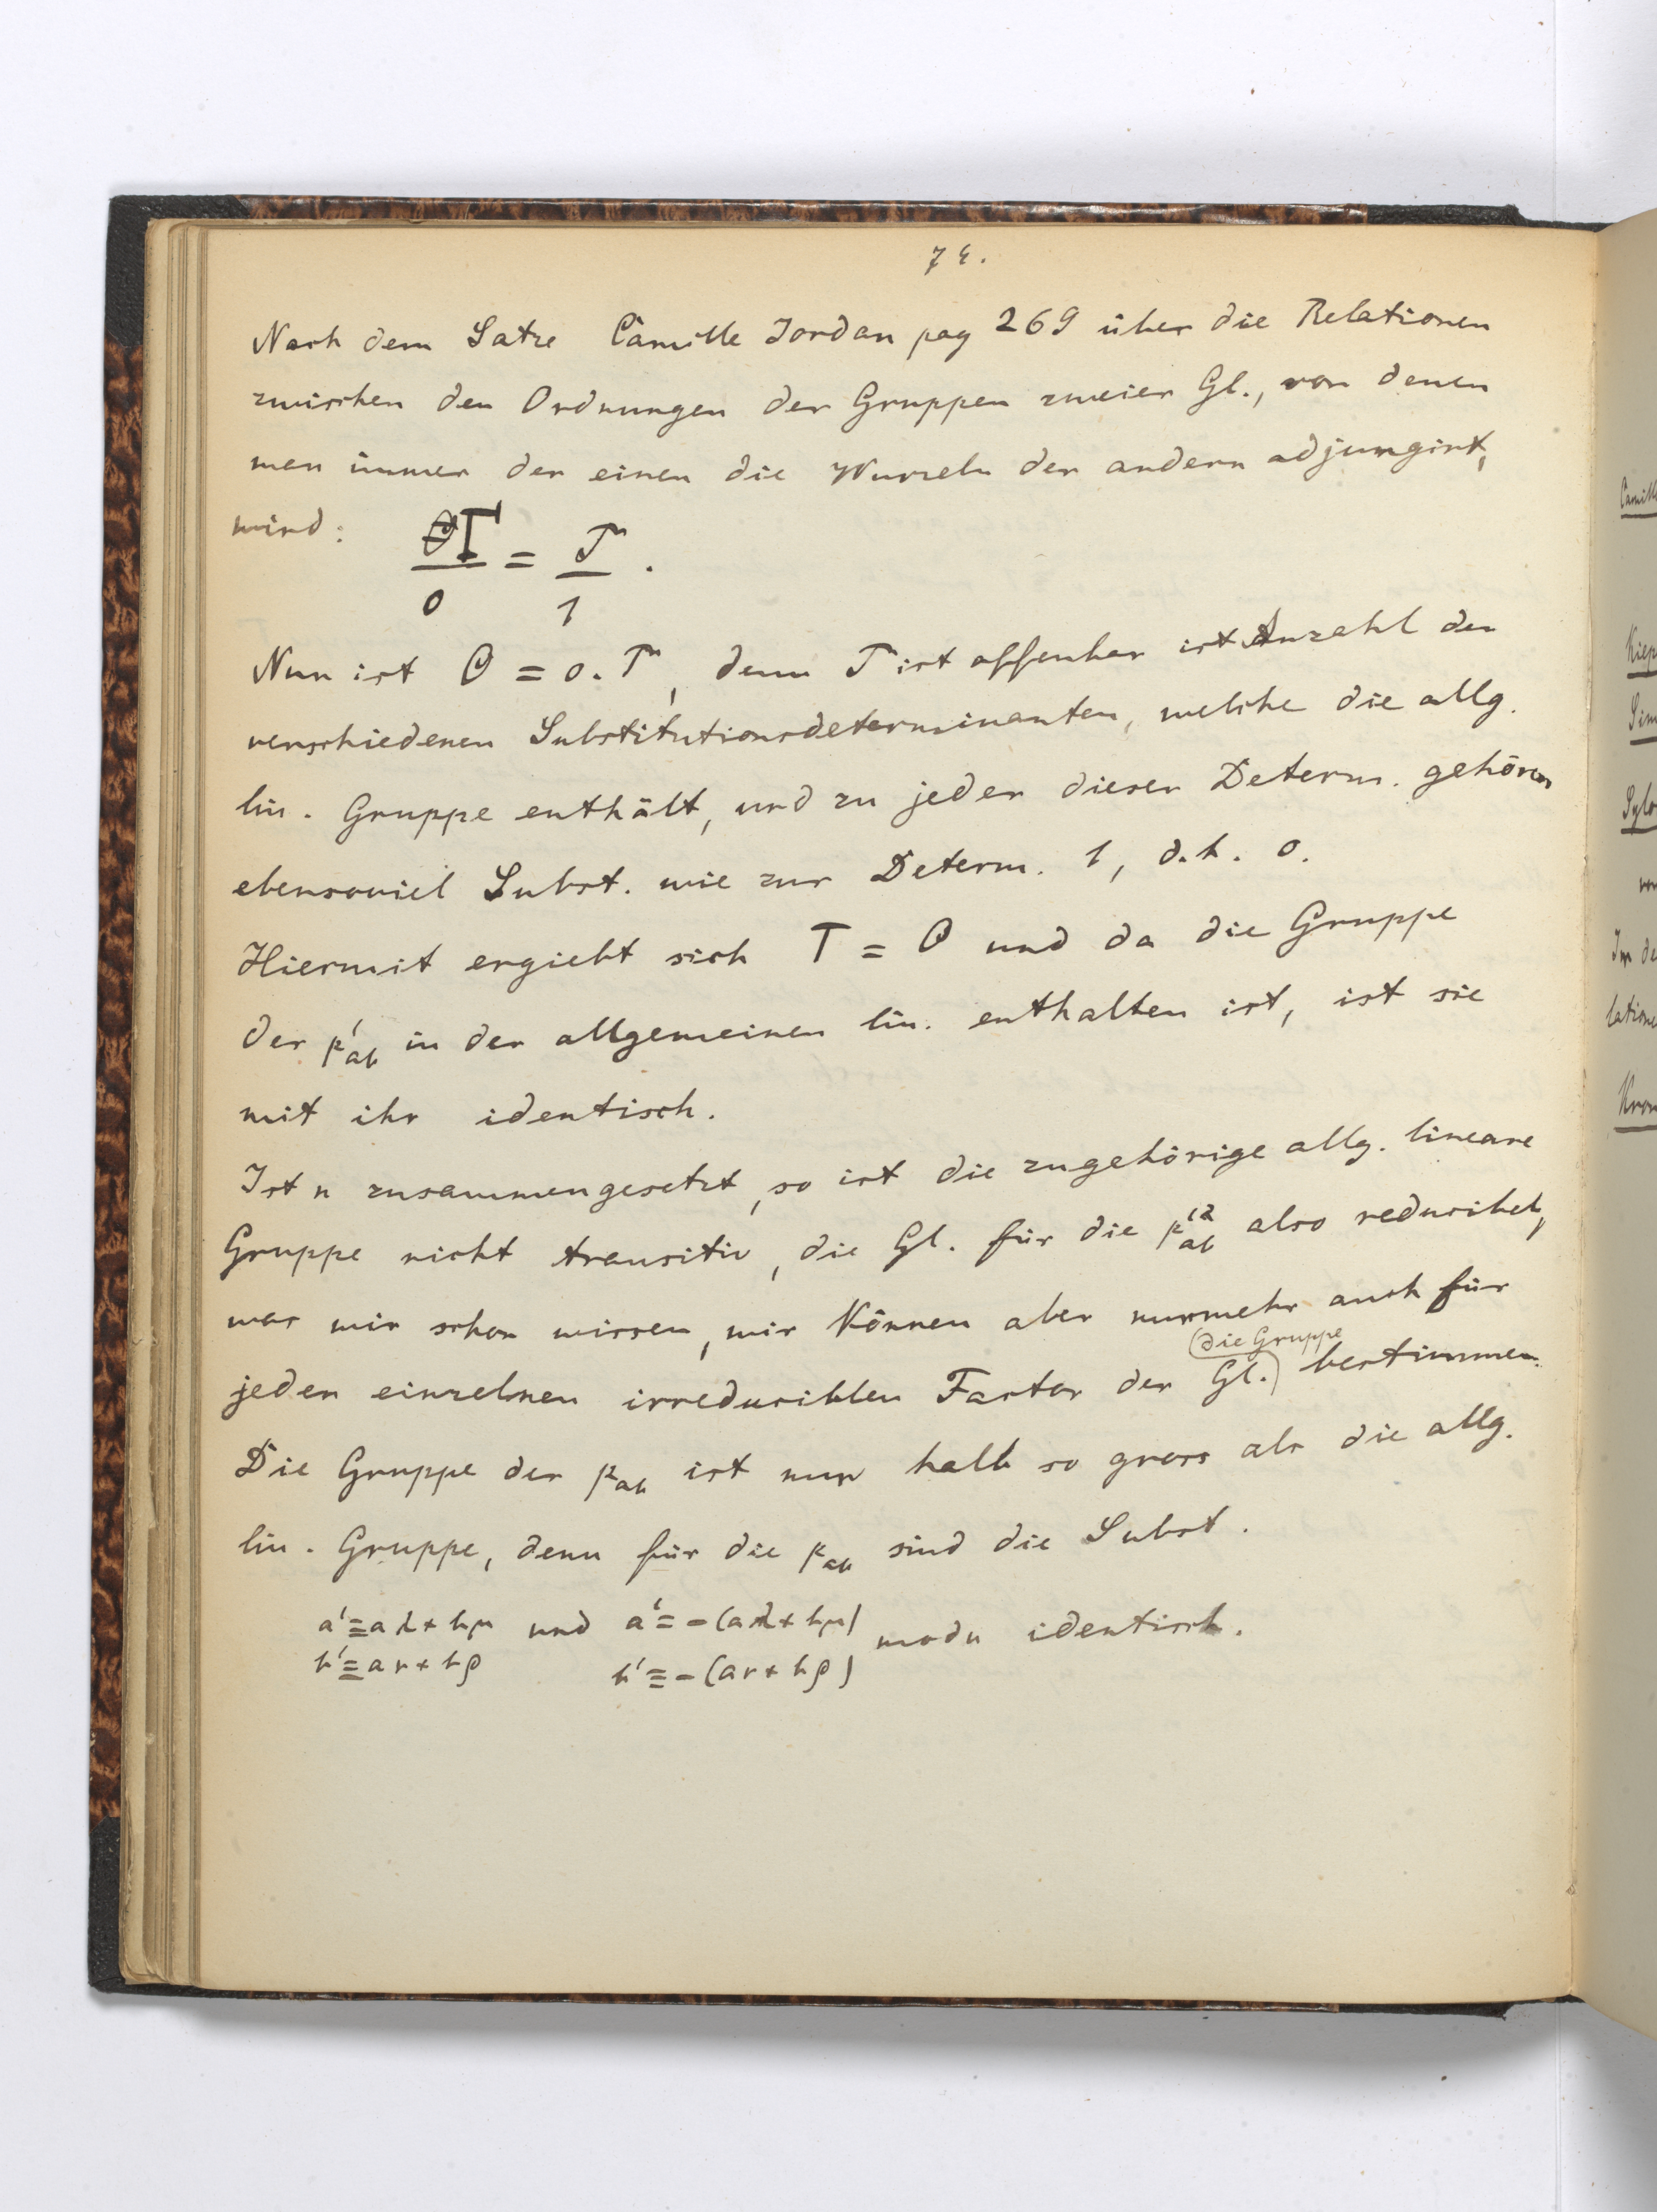 74.
Nach dem Satze Camille Jordan pag 269 über die Relationen
zwischen den Ordnungen der Gruppen zweier Gl., von denen
man immer der einen die Wurzeln der andern adjungirt,
wird:
T/o = 𝒯/1 .
Nun ist O = o. 𝒯, denn 𝒯 ist offenbar ist Anzahl der
verschiedenen Substitutionsdeterminanten, welche die allg.
lin. Gruppe enthält, und zu jeder dieser Determ. gehören
ebensoviel Subst. wie zur Determ. 1, d.h. o.
Hiermit ergiebt sich T = O und da die Gruppe
der p'ab in der allgemeinen lin. enthalten ist, ist sie
mit ihr identisch.
Ist n zusammengesetzt, so ist die zugehörige allg. lineare
Gruppe nicht transitiv, die Gl. für die p'²ab also reducibel,
was wir schon wissen, wir können aber nunmehr auch für
jeden einzelnen irreduciblen Factor der Gl. (die Gruppe) bestimmen.
Die Gruppe der pab ist nur halb so gross als die allg.
lin. Gruppe, denn für die pab sind die Subst.
a'≡aλ+bμ und a'≡-(aλ+bμ) modn identisch.
b'≡aν+bρ b'≡-(aν+bρ)
Camill
Kiep
Sim
Sylo
Im de
latione
Kron